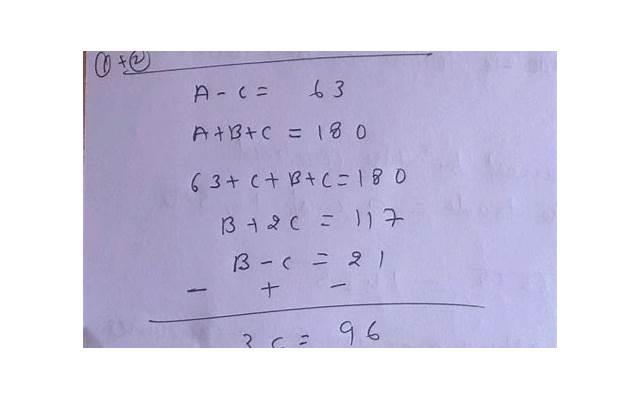 ① + ②
A - C = 63
A + B + C = 180
63 + C + B + C = 180
B + 2C = 117
B - C = 21
- + -
3C = 96